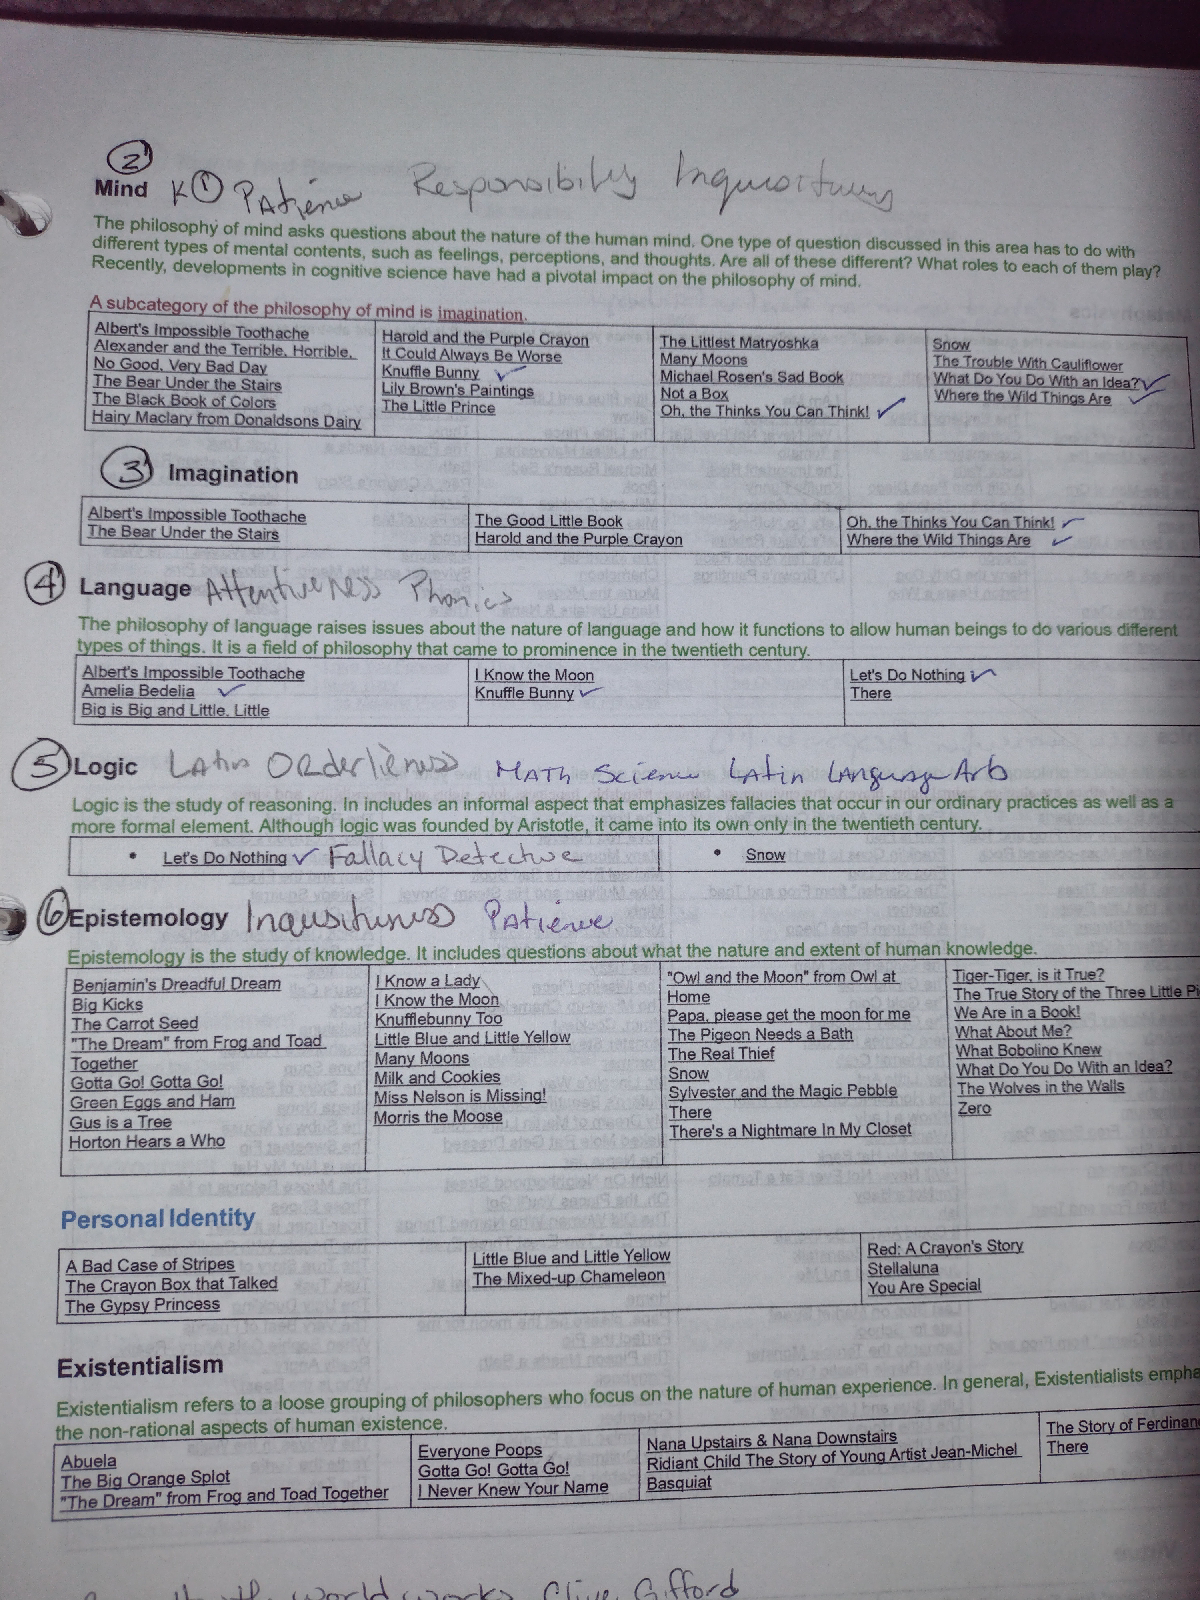 2
Mind K 1 Patience Responsibility
The philosophy of mind asks questions about the nature of the human mind. One type of question discussed in this area has to do with
different types of mental contents, such as feelings, perceptions, and thoughts. Are all of these different? What roles to each of them play?
Recently, developments in cognitive science have had a pivotal impact on the philosophy of mind.
A subcategory of the philosophy of mind is imagination.
Albert's Impossible Toothache
Alexander and the Terrible, Horrible,
No Good, Very Bad Day
The Bear Under the Stairs
The Black Book of Colors
Hairy Maclary from Donaldsons Dairy
Harold and the Purple Crayon
It Could Always Be Worse
Knuffle Bunny ✓
Lily Brown's Paintings
The Little Prince
The Littlest Matryoshka
Many Moons
Michael Rosen's Sad Book
Not a Box
Oh, the Thinks You Can Think! ✓
Snow
The Trouble With Cauliflower
What Do You Do With an Idea? ✓
Where the Wild Things Are ✓
3 Imagination
Albert's Impossible Toothache
The Bear Under the Stairs
The Good Little Book
Harold and the Purple Crayon
Oh, the Thinks You Can Think! ✓
Where the Wild Things Are ✓
4 Language Attentiveness Phonics
The philosophy of language raises issues about the nature of language and how it functions to allow human beings to do various different
types of things. It is a field of philosophy that came to prominence in the twentieth century.
Albert's Impossible Toothache
Amelia Bedelia ✓
Big is Big and Little, Little
I Know the Moon
Knuffle Bunny ✓
Let's Do Nothing ✓
There
5 Logic Latin Orderliness Math Science Latin Language Arts
Logic is the study of reasoning. In includes an informal aspect that emphasizes fallacies that occur in our ordinary practices as well as a
more formal element. Although logic was founded by Aristotle, it came into its own only in the twentieth century.
• Let's Do Nothing ✓ Fallacy Detective
• Snow
6 Epistemology Patience
Epistemology is the study of knowledge. It includes questions about what the nature and extent of human knowledge.
Benjamin's Dreadful Dream
Big Kicks
The Carrot Seed
"The Dream" from Frog and Toad
Together
Gotta Go! Gotta Go!
Green Eggs and Ham
Gus is a Tree
Horton Hears a Who
I Know a Lady
I Know the Moon
Knufflebunny Too
Little Blue and Little Yellow
Many Moons
Milk and Cookies
Miss Nelson is Missing!
Morris the Moose
"Owl and the Moon" from Owl at
Home
Papa, please get the moon for me
The Pigeon Needs a Bath
The Real Thief
Snow
Sylvester and the Magic Pebble
There
There's a Nightmare In My Closet
Tiger-Tiger, is it True?
The True Story of the Three Little Pi
We Are in a Book!
What About Me?
What Bobolino Knew
What Do You Do With an Idea?
The Wolves in the Walls
Zero
Personal Identity
A Bad Case of Stripes
The Crayon Box that Talked
The Gypsy Princess
Little Blue and Little Yellow
The Mixed-up Chameleon
Red: A Crayon's Story
Stellaluna
You Are Special
Existentialism
Existentialism refers to a loose grouping of philosophers who focus on the nature of human experience. In general, Existentialists empha
the non-rational aspects of human existence.
Abuela
The Big Orange Splot
"The Dream" from Frog and Toad Together
Everyone Poops
Gotta Go! Gotta Go!
I Never Knew Your Name
Nana Upstairs & Nana Downstairs
Ridiant Child The Story of Young Artist Jean-Michel
Basquiat
The Story of Ferdinan
There
world works Clive Gifford